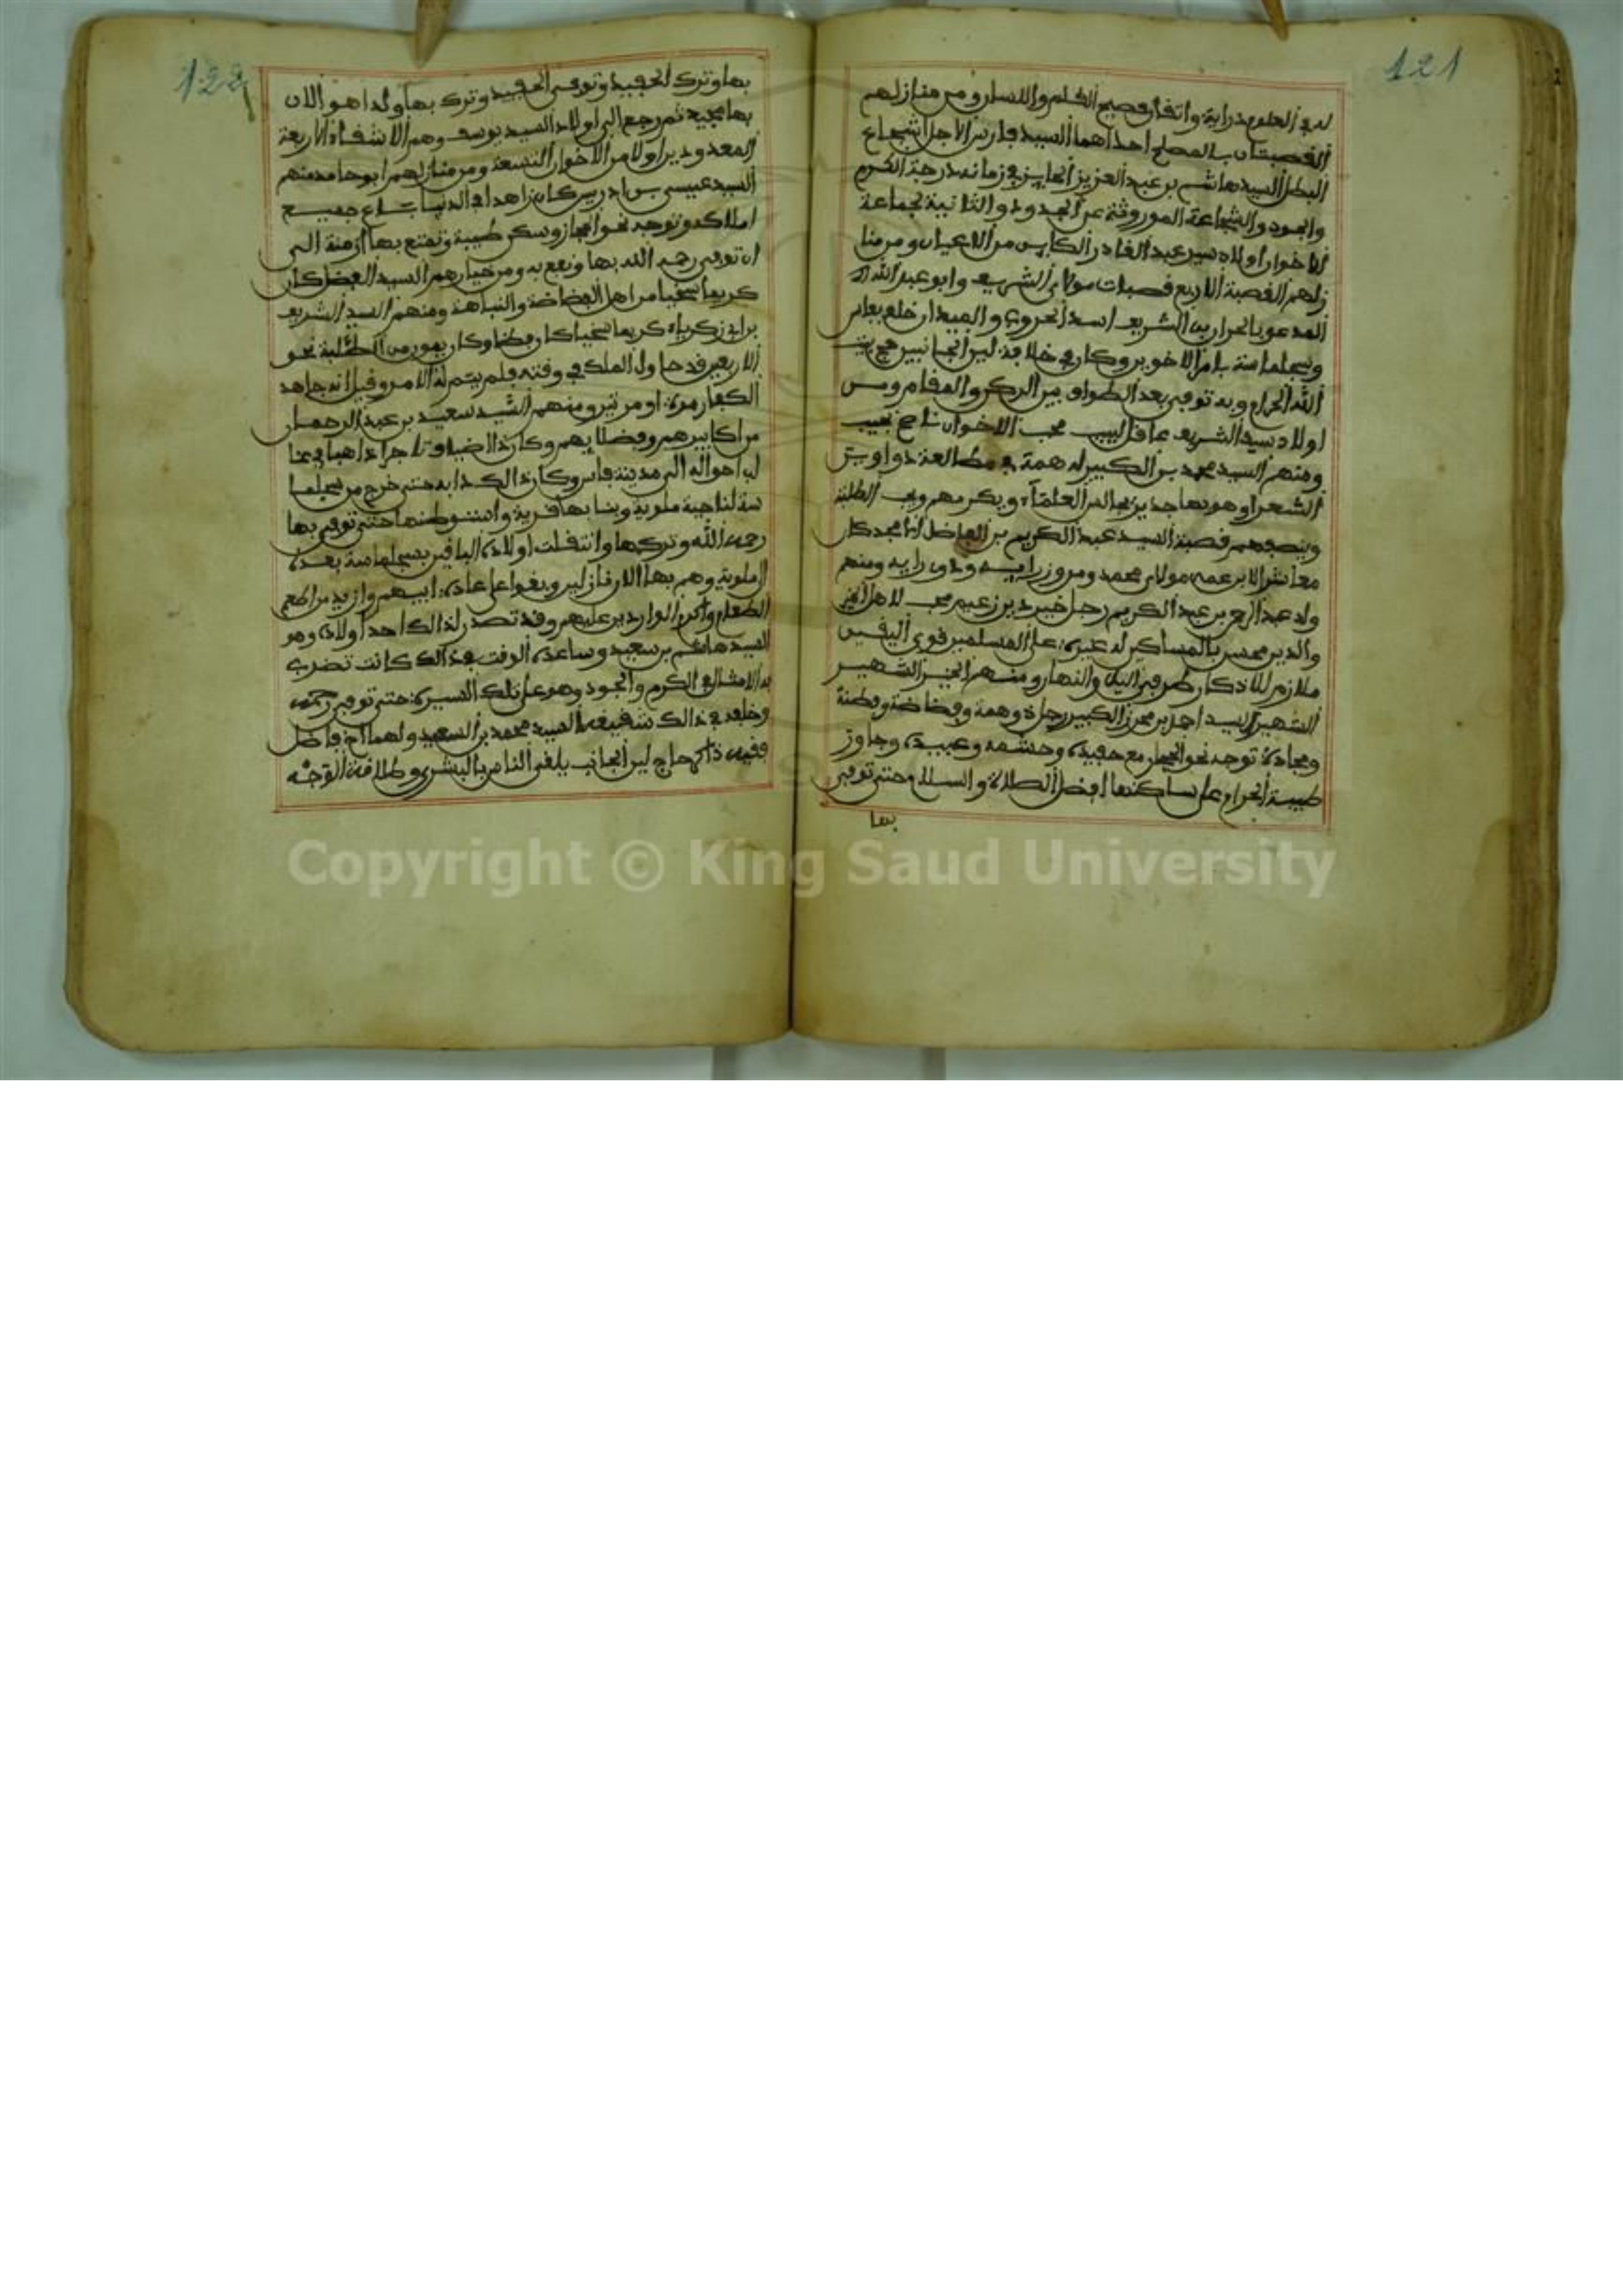 121
له في العلوم دراية واتقان فصيح القلم واللسان ومن منازلهم
القصبتان بالمصلح احداهما السيد فارس الاجل الشجاع
البطل السيد هاشم بن عبد العزيز الحايز في زمانه درجة الكرم
والجود والشجاعة الموروثة عن الجدود والثانية لجماعة
الاخوان اولاد سيد عبد القادر الكاين من الاعيان ومن منا
زلهم القصبة الاربع قصبات مولاي الشريف وابو عبد الله
المدعو بالحران بن الشريف اسد الحروب والميدان خلع بفاس
وسجلماسة بامر الاخوين وكان في خلافة لين الجانبين حج بيت
الله الحرام وبه توفي بعد الطواف بين الركن والمقام ومن
اولاد سيد الشريف عاقل لبيب محب الاخوان ناصح نجيب
ومنهم السيد محمد بن الكبير له همة في مطالعة دواوين
الشعراء وهو بها جدير يجالس العلماء ويكرمهم ويحب الطلبة
قصبة السيد عبد الكريم بن الفاضل الامجد كان
معاشر الابن عمه مولاي محمد ومن وزرايه وذوي رايه ومنهم
ولد عبد الرحمن بن عبد الكريم رجل خير دين زعيم محب لاهل الخير
والدين محسن بالمساكين له غيرة على المسلمين قوي اليقين
ملازم للاذكار طرفي اليل والنهار ومنهم الخير الشهير
الشهير السيد احمد بن محرز الكبير رجل ذو همة وفضاضة وفطنة
ومجادة توجه نحو الحجاز مع حفيده وحشمه وعبيده وجاوز
طيبة الحرام على ساكنها افضل الصلاة والسلام حتى توفي
بها
122
بها وترك الحفيد وتوفي الحفيد وترك بها ولدا هو الان
بها مجيد ثم رجع الى اولاد السيد يوسف وهم الاشقاء الاربعة
المعدودين اولا من الاخوان التسعة ومن منازلهم ابوحامد منهم
السيد عيسى بن ادريس كان زاهدا في الدنيا باع جميع
املاكه وتوجه نحو الحجاز وسكن طيبة وتمتع بها ازمنة الى
ان توفي رحمه الله بها ونفع به ومن خيارهم السيد الفضل كان
كريما سخيا من اهل الفضاضة والنباهة ومنهم السيد الشريف
بن ابي زكرياء كريما سخيا كان فطنا وكان يمون من الطلبة نحو
الاربعين قد حاول الملك في وقته فلم يتم له الامر وقيل انه جاهد
الكفار مرة او مرتين ومنهم السيد سعيد بن عبد الرحمان
من اكابرهم وفضلايهم وكان ذا ضياف تاجرا ذاهبا في غا
لب احواله الى مدينة فاس وكان ذالك دابه حتى خرج من سجلما
سة لناحية ملوية وبنا بها قرية واستوطنها حتى توفي بها
رحمه الله وتركها وانتقلت اولاده الباقين بسجلماسة بعده
الى ملوية وهم بها الان نازلين وبقوا على عادة ابيهم وازيد من اطعام
الطعام واكرام الواردين عليهم وقد تصدر لذالك احد اولاده وهو
السيد هاشم بن سعيد وساعده الوقت في ذالك كانت تضرب
به الامثال في الكرم والجود وهو على تلك السيرة حتى توفي رحمه
وخلفه في ذالك شقيقه السيد محمد بن السعيد ولهما اخ فاضل
فقيه ذاكر حاج لين الجانب يلقى الناس بالبشرى وطلاقة الوجه
Copyright © King Saud University